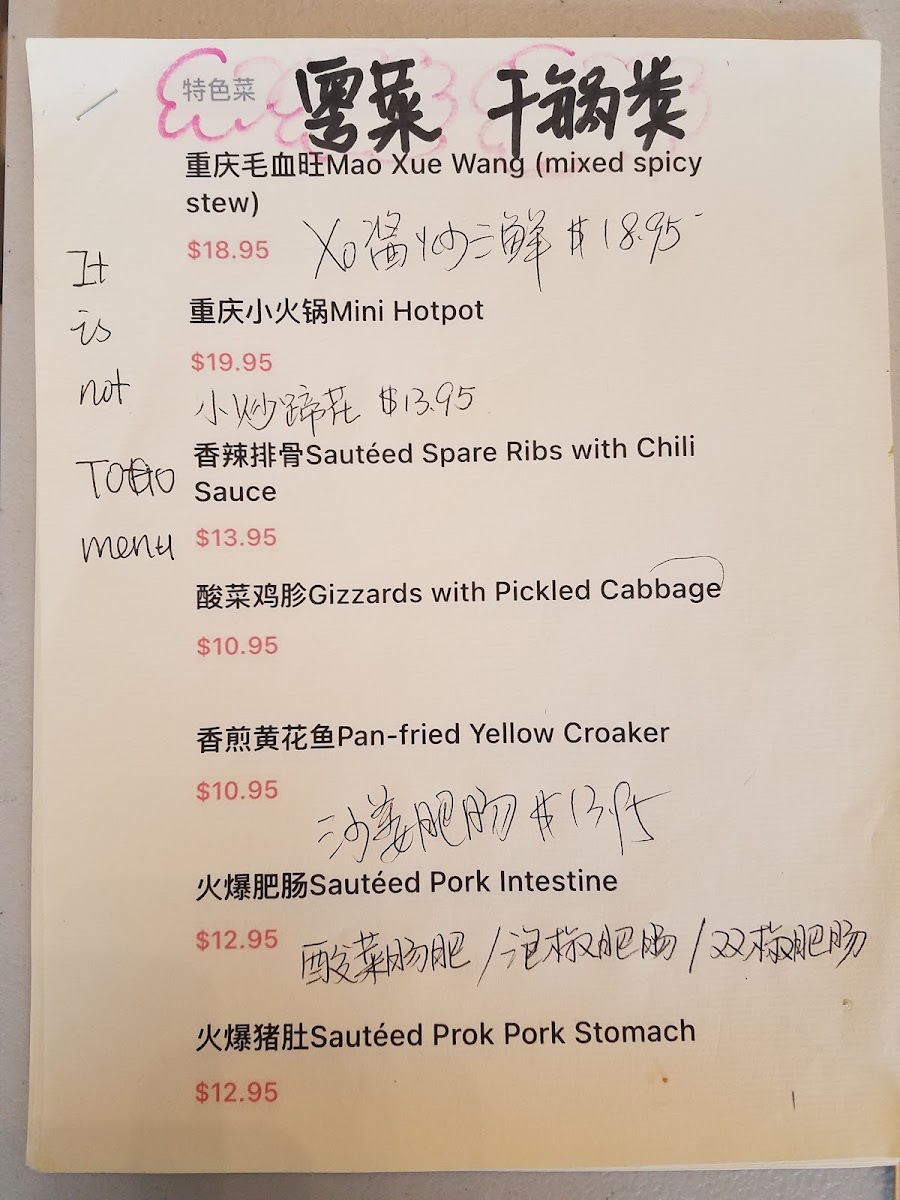 特色菜 粤菜 干锅类
重庆毛血旺Mao Xue Wang (mixed spicy
stew)
$18.95 XO酱炒三鲜 $18.95
重庆小火锅Mini Hotpot
$19.95
小炒蹄花 $13.95
香辣排骨Sautéed Spare Ribs with Chili
Sauce
$13.95
酸菜鸡胗Gizzards with Pickled Cabbage
$10.95
香煎黄花鱼Pan-fried Yellow Croaker
$10.95
沙姜肥肠 $13.95
火爆肥肠Sautéed Pork Intestine
$12.95 酸菜肠肥 / 泡椒肥肠 / 双椒肥肠
火爆猪肚Sautéed Prok Pork Stomach
$12.95
It
is
not
TOGO
menu